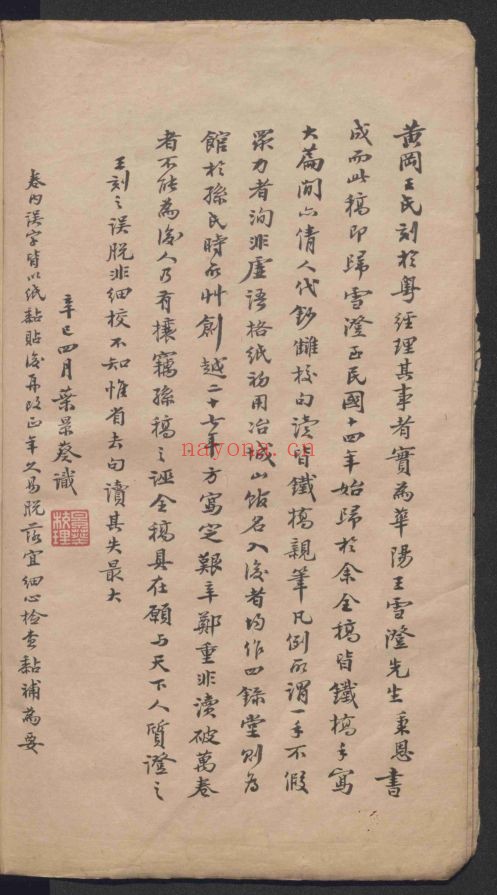 黃岡王氏刻於粵經理其事者實為華陽王雪澄先生秉恩書
成而此稿即歸雪澄至民國十四年始歸於余全稿皆鐵橋手寫
大篇間亦倩人代鈔雠校句讀皆鐵橋親筆凡例所謂一手不假
眾力者洵非虛語格紙初用冶城山館名入後者均作四錄堂則為
館於孫氏時所艸創越二十七年方寫定艱辛鄭重非讀破萬卷
者不能為後人乃有攘竊孫稿之誣全稿具在願與天下人質證之
王刻之誤脫非細校不知惟省去句讀其失最大
辛巳四月葉景葵識
景葵校理
卷內誤字皆以紙黏貼後再改正年久易脫落宜細心檢查黏補為要
nayona.cn